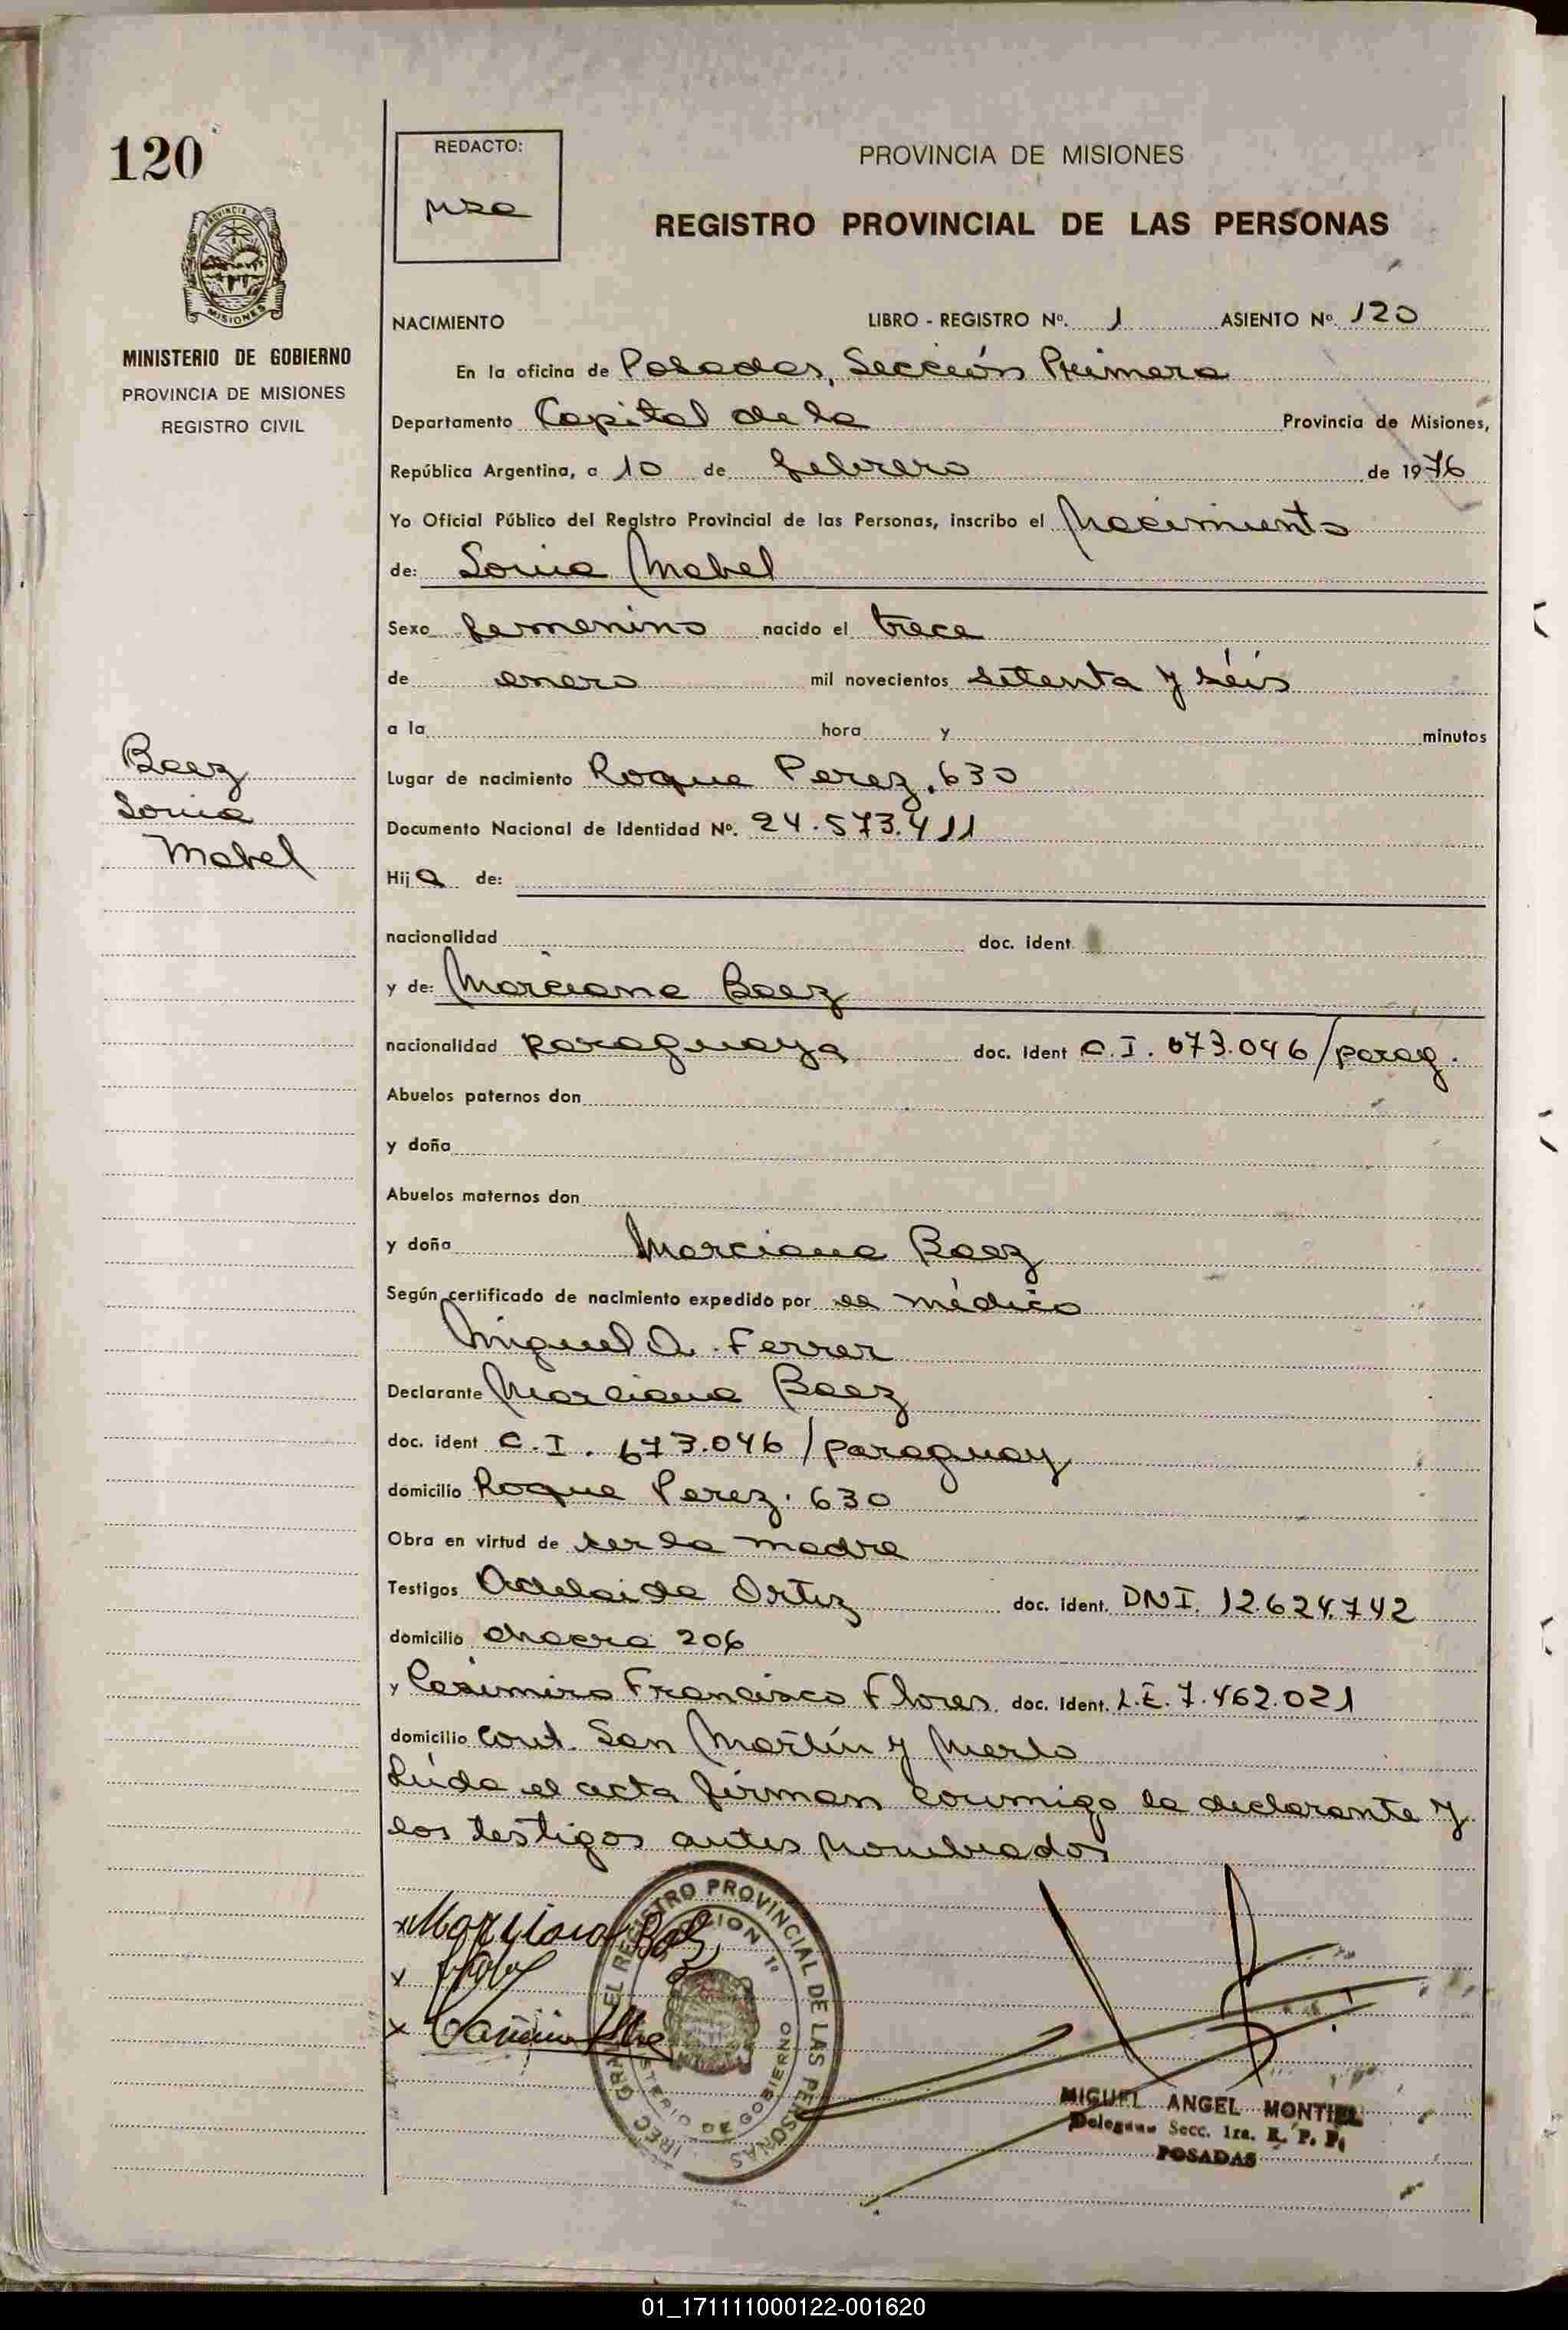 120
REDACTO:
PROVINCIA DE MISIONES
REGISTRO PROVINCIAL DE LAS PERSONAS
PROVINCIA DE
MISIONES
MINISTERIO DE GOBIERNO
PROVINCIA DE MISIONES
REGISTRO CIVIL
NACIMIENTO LIBRO - REGISTRO Nº. 1 ASIENTO Nº. 120
En la oficina de Posadas, Sección Primera
Departamento Capital de la Provincia de Misiones,
República Argentina, a 10 de febrero de 1976
Yo Oficial Público del Registro Provincial de las Personas, inscribo el Nacimiento
de: Sonia Mabel
Sexo femenino nacido el trece
de enero mil novecientos setenta y séis
a la hora y minutos
Baez
Sonia
Mabel
Lugar de nacimiento Roque Perez. 630
Documento Nacional de Identidad Nº. 24.573.411
Hija de:
nacionalidad doc. ident.
y de: Marciana Baez
nacionalidad paraguaya doc. Ident C.I. 673.046/parag.
Abuelos paternos don
y doña
Abuelos maternos don
y doña Marciana Baez
Según certificado de nacimiento expedido por el médico
Miguel A. Ferrer
Declarante Marciana Baez
doc. ident C.I. 673.046/paraguay
domicilio Roque Perez. 630
Obra en virtud de ser la madre
Testigos Adelaida Ortiz doc. ident. DNI. 12.624.742
domicilio chacra 206
y Casimiro Francisco Flores. doc. Ident. L.E. 7.462.021
domicilio cont. San Martín y Merlo
Leída el acta firman conmigo la declarante y
los testigos antes nombrados
x Marciana Baez
x
x Casimiro
REGISTRO PROVINCIAL DE LAS PERSONAS
SECCION 1º
DE GOBIERNO
MIGUEL ANGEL MONTIEL
Delegado Secc. 1ra. R. P. P.
POSADAS
01_171111000122-001620